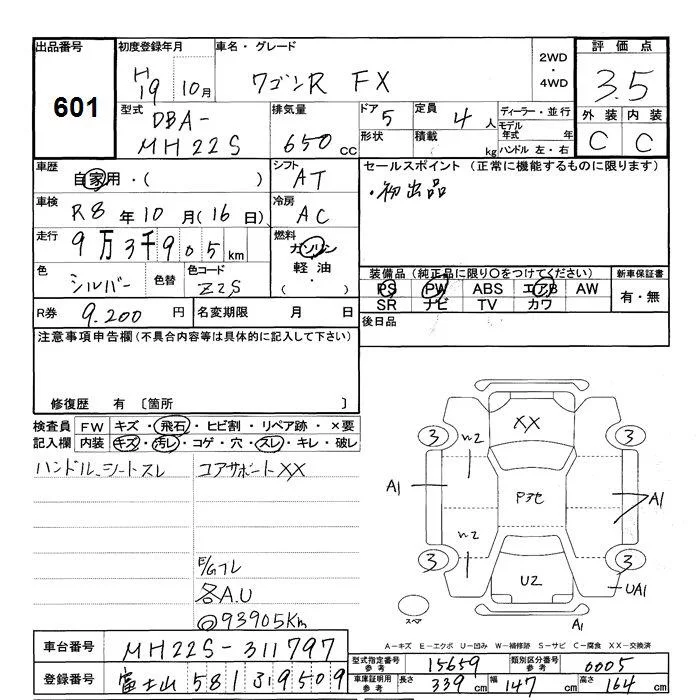 出品番号
601
初度登録年月
H19 10月
車名・グレード
ワゴンR FX
2WD
・
4WD
評価点
3.5
外装 内装
C C
型式
DBA-
MH22S
排気量
650 cc
ドア 5
形状
定員 4 人
積載 kg
ディーラー・並行
モデル年式 年
ハンドル 左・右
車歴
自家用・( )
シフト
AT
車検
R8年10月(16日)
冷房
AC
走行
9万3千905km
燃料
ガソリン
軽油・
( )
色
シルバー
色替
色コード
Z2S
R券 9,200 円
名変期限 月 日
セールスポイント (正常に機能するものに限ります)
・初出品
装備品 (純正品に限り○をつけてください)
PS PW ABS エアB AW
SR ナビ TV カワ
新車保証書
有・無
後日品
注意事項申告欄 (不具合内容等は具体的に記入して下さい)
修復歴 有 〔箇所 〕
検査員 FW キズ・飛石・ヒビ割・リペア跡・×要
記入欄 内装 キズ・汚レ・コゲ・穴・スレ・キレ・破レ
ハンドル、シートスレ
コアサポートXX
E/Gフレ
各A.U
◎93905Km
XX
3 3
W2
A1
P他
A1
W2
3 3
U2
UA1
A1
スペア
A-キズ E-エクボ U-凹み W-補修跡 S-サビ C-腐食 XX-交換済
車台番号 MH22S-311797
登録番号 富士山 581 す 9509
型式指定番号 参考 15659
類別区分番号 参考 0005
車庫証明用 参考 長さ 339 cm 幅 147 cm 高さ 164 cm